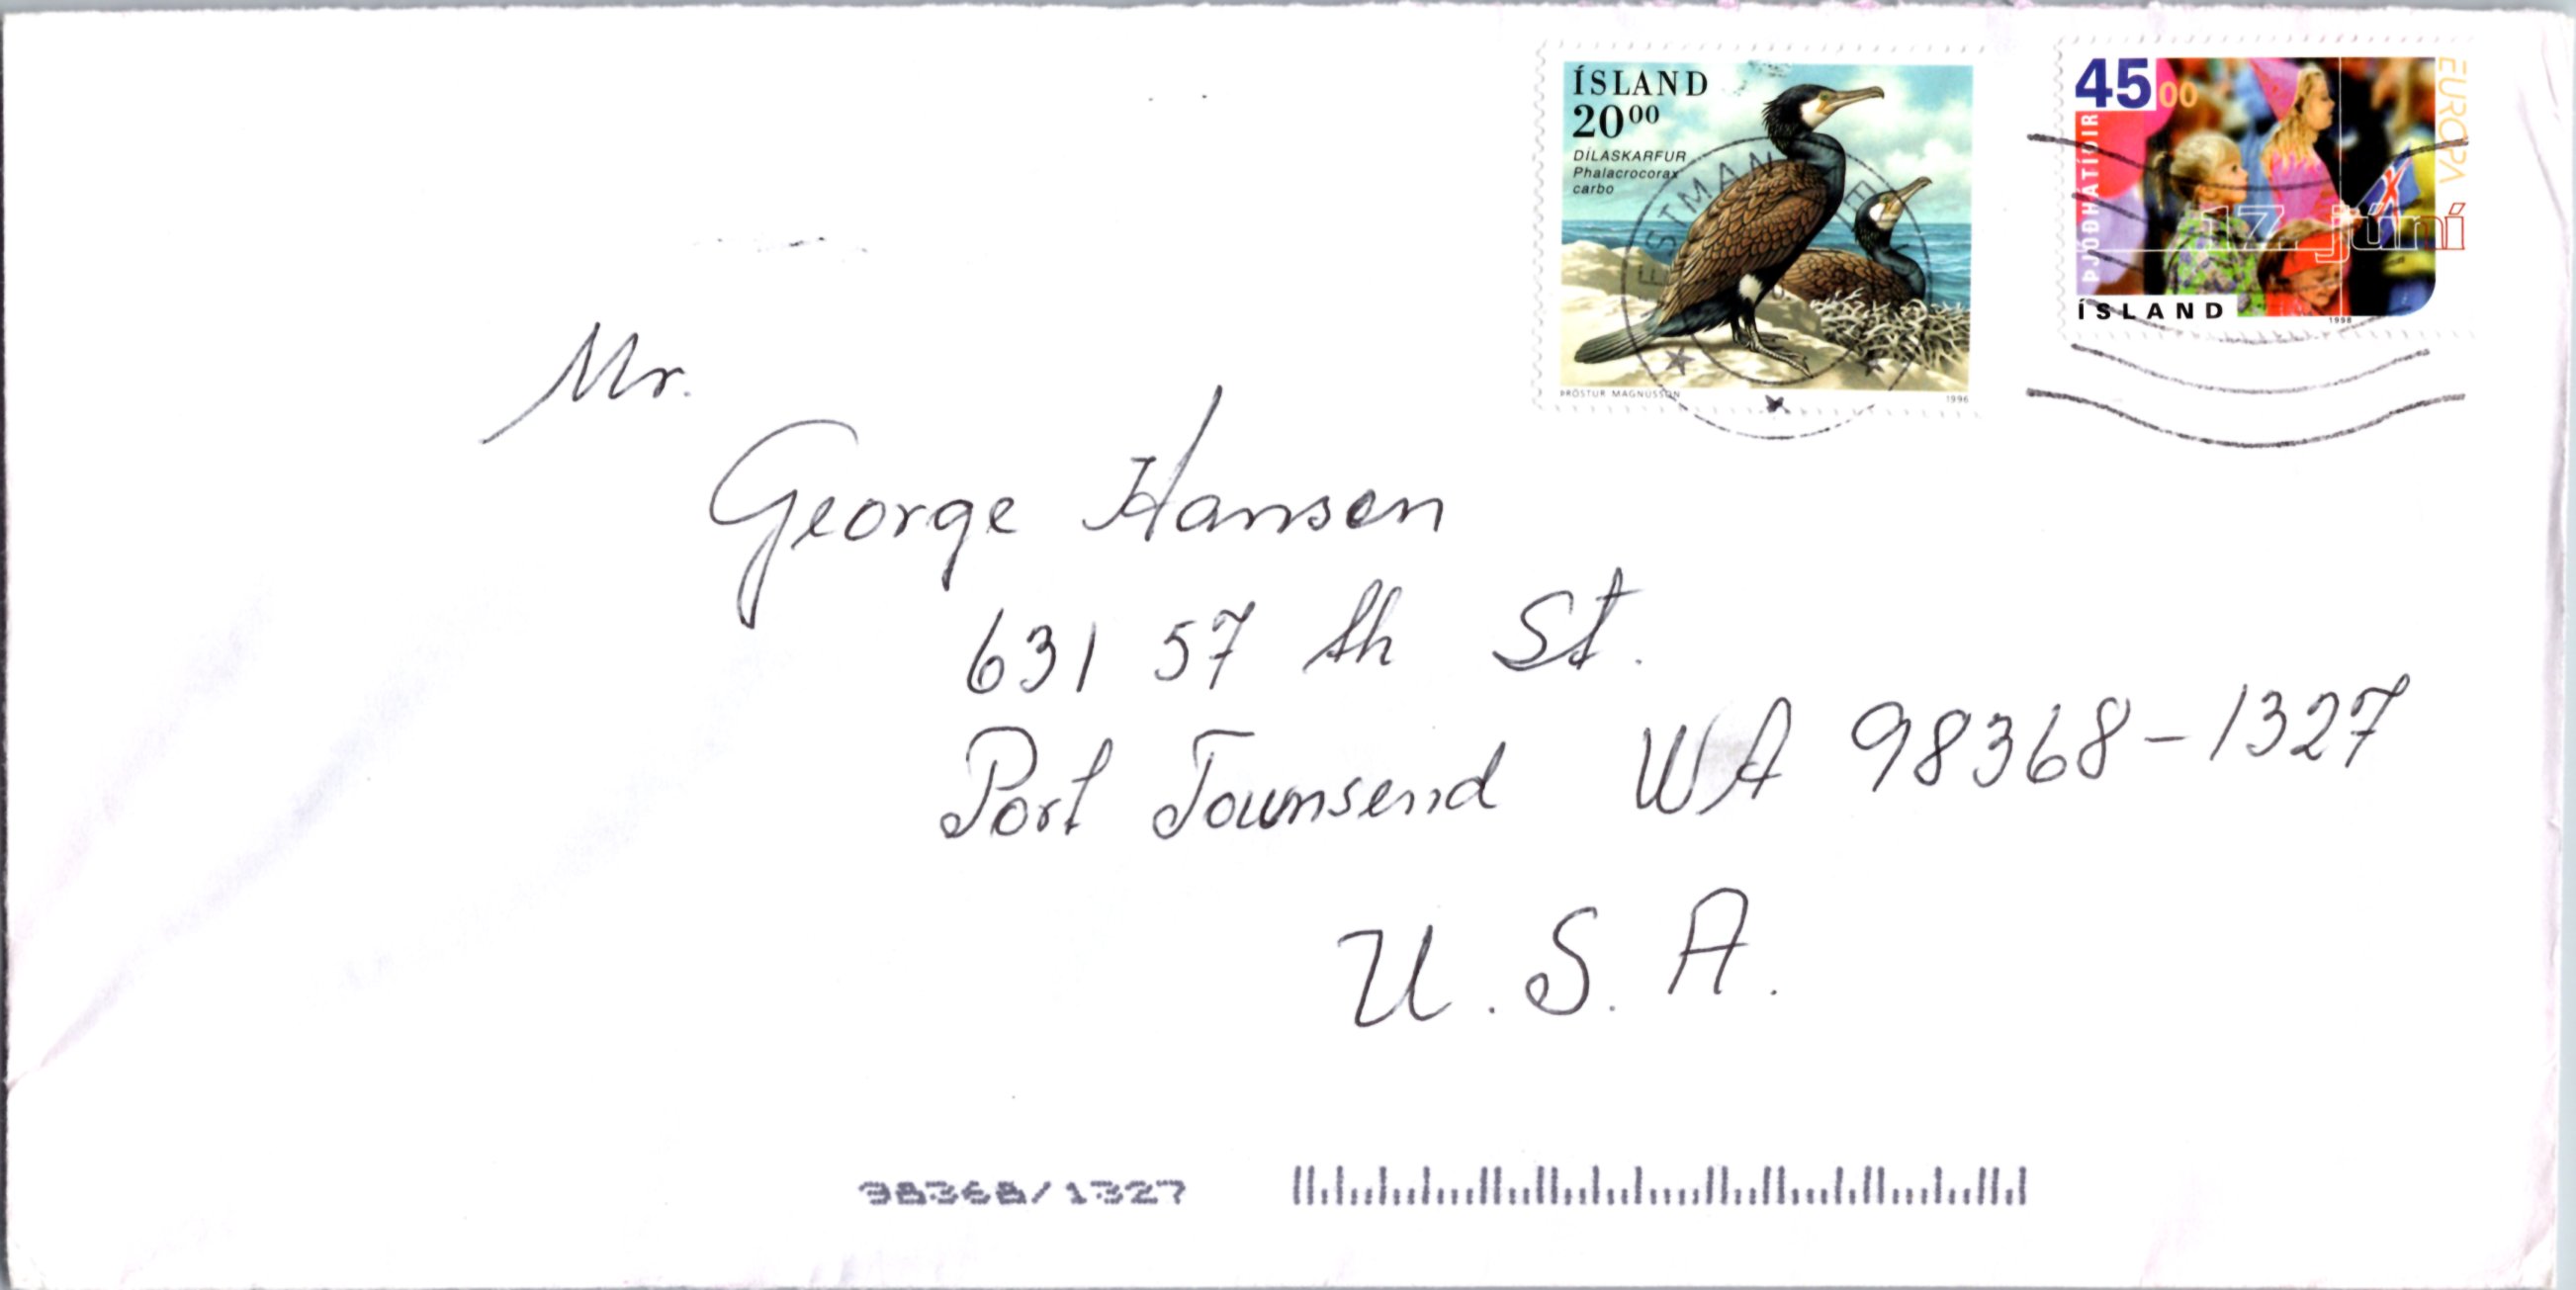 ÍSLAND
20⁰⁰
DÍLASKARFUR
Phalacrocorax
carbo
ÞRÖSTUR MAGNÚSSON
1996
45 00
EUROPA
ÞJÓÐHÁTÍÐIR
17. júní
ÍSLAND
1998
Mr.
George Hansen
631 57 th St.
Port Townsend WA 98368-1327
U.S.A.
98368/1327